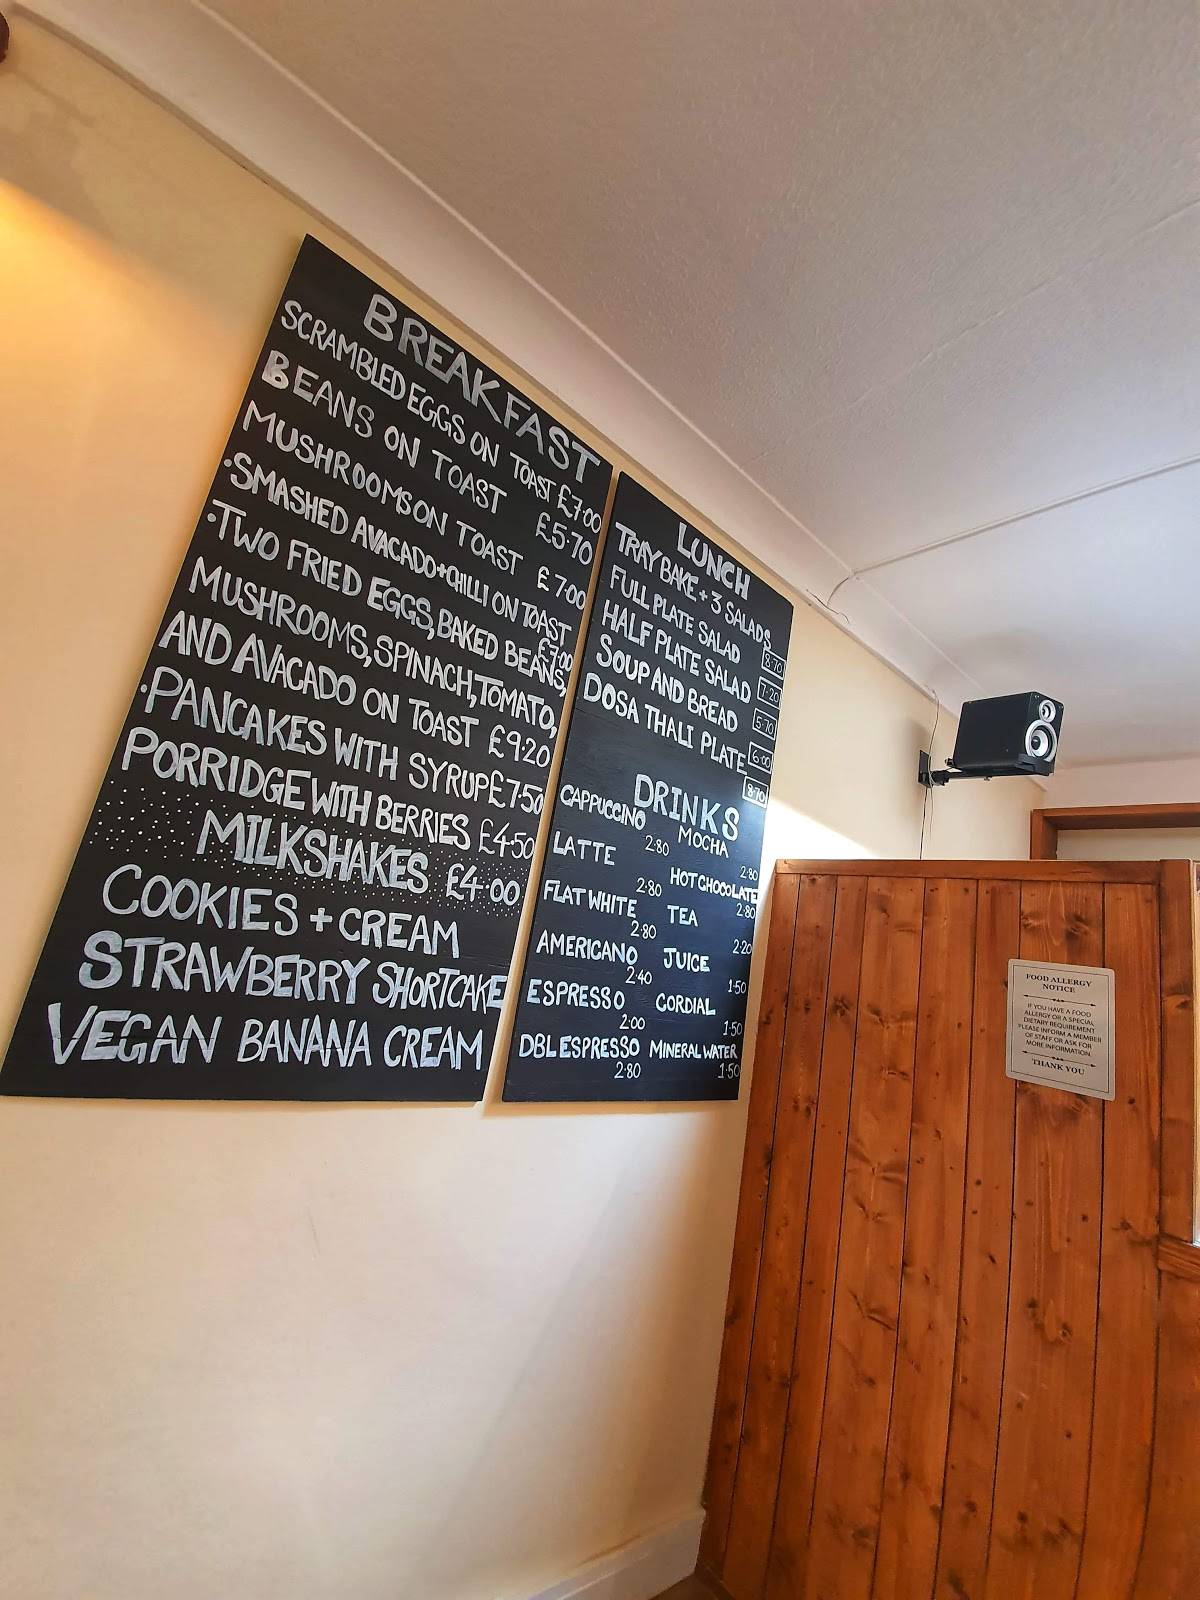 BREAKFAST
SCRAMBLED EGGS ON TOAST £7·00
BEANS ON TOAST £5·70
MUSHROOMS ON TOAST £7·00
·SMASHED AVACADO+CHILLI ON TOAST
£7·00
·TWO FRIED EGGS, BAKED BEANS,
MUSHROOMS, SPINACH, TOMATO,
AND AVACADO ON TOAST £9·20
·PANCAKES WITH SYRUP £7·50
PORRIDGE WITH BERRIES £4·50
MILKSHAKES £4·00
COOKIES + CREAM
STRAWBERRY SHORTCAKE
VEGAN BANANA CREAM
LUNCH
TRAY BAKE + 3 SALADS
8·70
FULL PLATE SALAD
7·20
HALF PLATE SALAD
5·70
SOUP AND BREAD
6·00
DOSA THALI PLATE
8·70
DRINKS
CAPPUCCINO
2·80
LATTE
2·80
FLAT WHITE
2·80
AMERICANO
2·40
ESPRESSO
2·00
DBL ESPRESSO
2·80
MOCHA
2·80
HOT CHOCOLATE
2·80
TEA
2·20
JUICE
1·50
CORDIAL
1·50
MINERAL WATER
1·50
FOOD ALLERGY
NOTICE
IF YOU HAVE A FOOD
ALLERGY OR A SPECIAL
DIETARY REQUIREMENT
PLEASE INFORM A MEMBER
OF STAFF OR ASK FOR
MORE INFORMATION.
THANK YOU